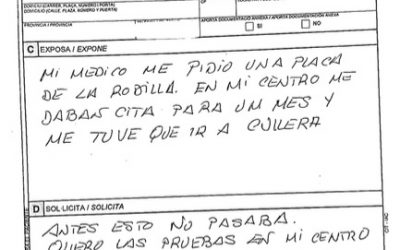 DOMICILI (CARRER, PLAÇA, NÚMERO I PORTA)
DOMICILIO (CALLE, PLAZA, NÚMERO Y PUERTA)
PROVÍNCIA / PROVINCIA
APORTA DOCUMENTACIÓ ANNEXA / APORTA DOCUMENTACIÓN ANEXA
SI
NO
C EXPOSA / EXPONE
MI MEDICO ME PIDIO UNA PLACA
DE LA RODILLA. EN MI CENTRO ME
DABAN CITA PARA UM MES Y
ME TUVE QUE IR A CULLERA
D SOL·LICITA / SOLICITA
ANTES ESTO NO PASABA.
QUIERO LAS PRUEBAS EN MI CENTRO